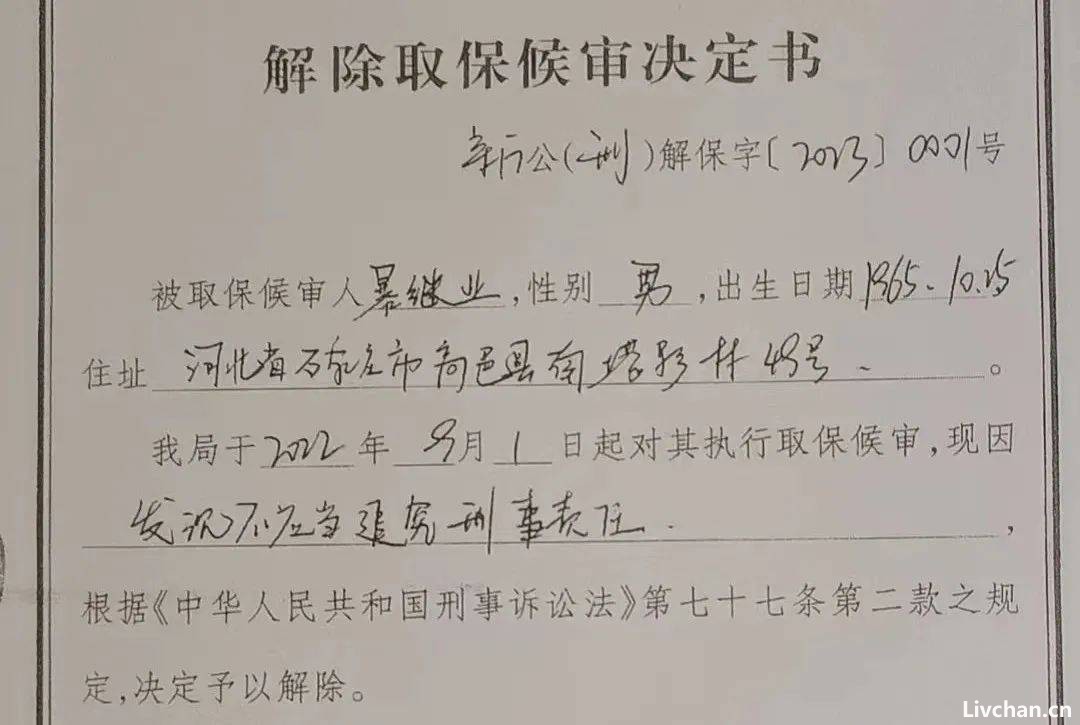 解除取保候审决定书
新公(刑)解保字〔2023〕0001号
被取保候审人暴继业,性别 男 ,出生日期1965.10.25
住址 河北省石家庄市高邑县南塔影村49号。
我局于2022年 9月 1 日起对其执行取保候审,现因
发现不应当追究刑事责任.,
根据《中华人民共和国刑事诉讼法》第七十七条第二款之规
定,决定予以解除。
Livchan.cn